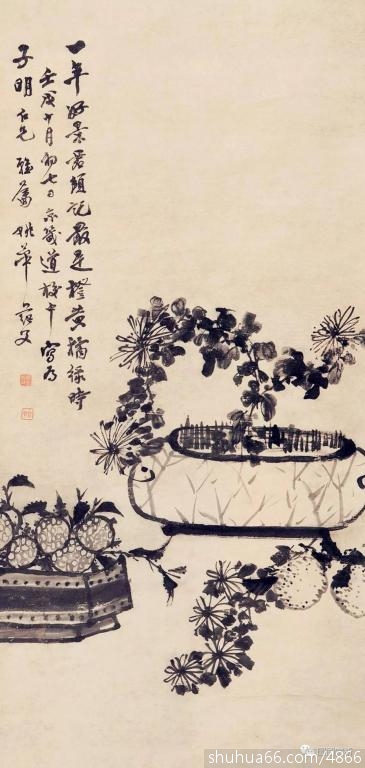 一年好景君須記最是橙黃橘綠時
壬戌十月初七日京畿道校中寫為
子明仁兄雅屬 姚華 茫父
shuhua66.com/4866